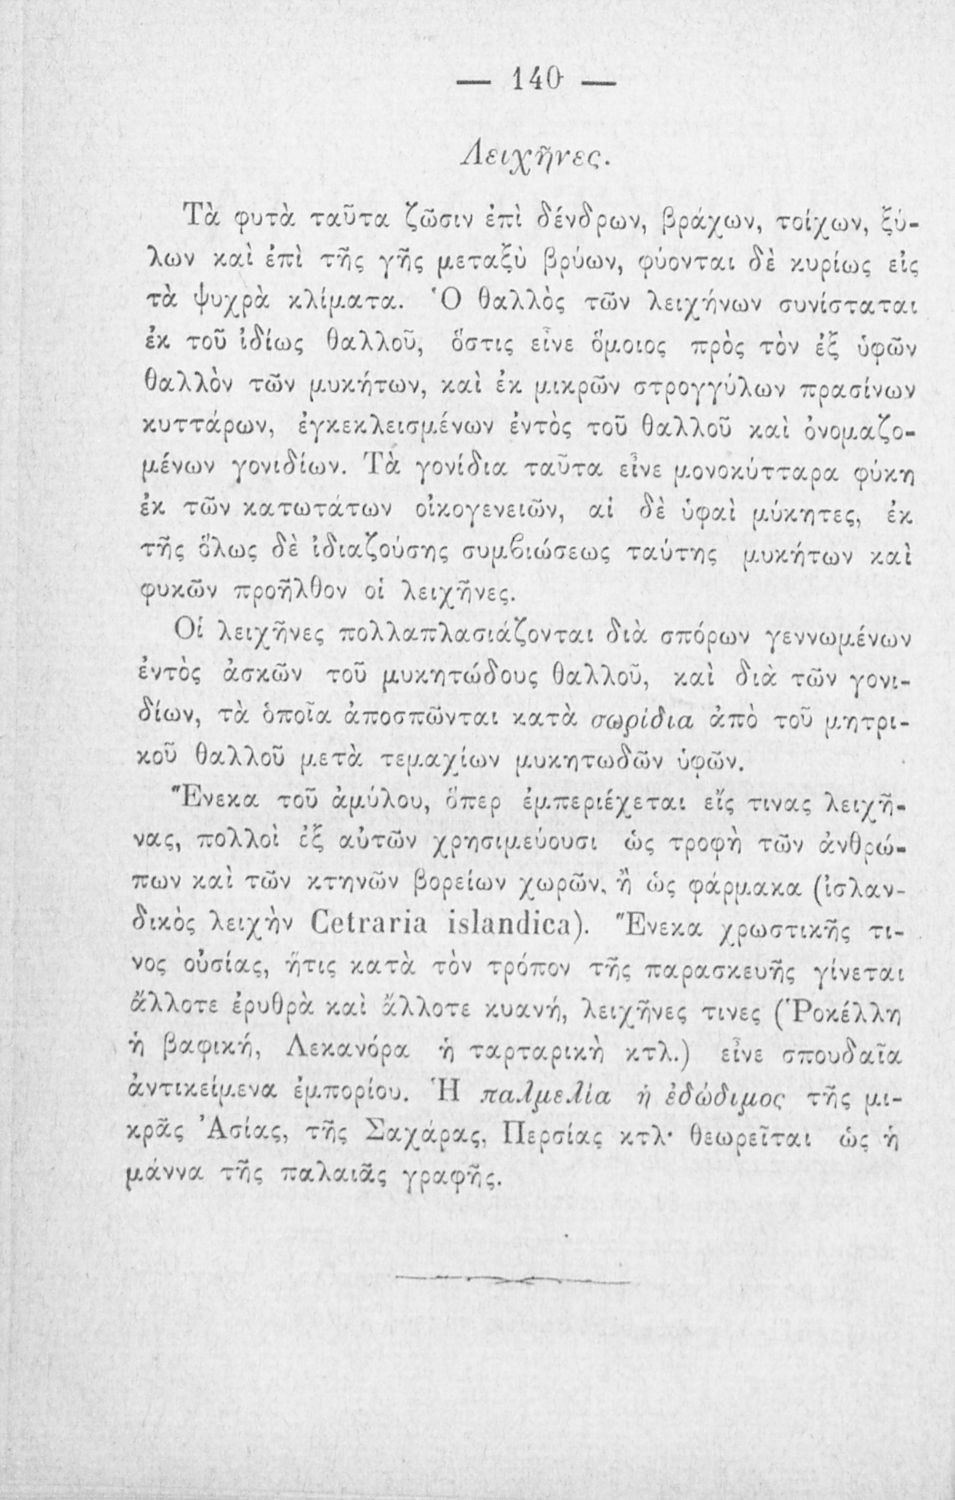 — 140 —
Λειχῆνες.
Τὰ φυτὰ ταῦτα ζῶσιν ἐπὶ δένδρων, βράχων, τοίχων, ξύ-
λων καὶ ἐπὶ τῆς γῆς μεταξὺ βρύων, φύονται δὲ κυρίως εἰς
τὰ ψυχρὰ κλίματα. Ὁ θαλλὸς τῶν λειχήνων συνίσταται
ἐκ τοῦ ἰδίως θαλλοῦ, ὅστις εἶνε ὅμοιος πρὸς τὸν ἐξ ὑφῶν
θαλλὸν τῶν μυκήτων, καὶ ἐκ μικρῶν στρογγύλων πρασίνων
κυττάρων, ἐγκεκλεισμένων ἐντὸς τοῦ θαλλοῦ καὶ ὀνομαζο-
μένων γονιδίων. Τὰ γονίδια ταῦτα εἶνε μονοκύτταρα φύκη
ἐκ τῶν κατωτάτων οἰκογενειῶν, αἱ δὲ ὑφαὶ μύκητες, ἐκ
τῆς ὅλως δὲ ἰδιαζούσης συμβιώσεως ταύτης μυκήτων καὶ
φυκῶν προῆλθον οἱ λειχῆνες.
Οἱ λειχῆνες πολλαπλασιάζονται διὰ σπόρων γεννωμένων
ἐντὸς ἀσκῶν τοῦ μυκητώδους θαλλοῦ, καὶ διὰ τῶν γονι-
δίων, τὰ ὁποῖα ἀποσπῶνται κατὰ σωρίδια ἀπὸ τοῦ μητρι-
κοῦ θαλλοῦ μετὰ τεμαχίων μυκητωδῶν ὑφῶν.
Ἕνεκα τοῦ ἀμύλου, ὅπερ ἐμπεριέχεται εἴς τινας λειχῆ-
νας, πολλοὶ ἐξ αὐτῶν χρησιμεύουσι ὡς τροφὴ τῶν ἀνθρώ-
πων καὶ τῶν κτηνῶν βορείων χωρῶν, ἢ ὡς φάρμακα (ἰσλαν-
δικὸς λειχὴν Cetraria islandica). Ἕνεκα χρωστικῆς τι-
νος οὐσίας, ἥτις κατὰ τὸν τρόπον τῆς παρασκευῆς γίνεται
ἄλλοτε ἐρυθρὰ καὶ ἄλλοτε κυανή, λειχῆνες τινες (Ῥοκέλλη
ἡ βαφική, Λεκανόρα ἡ ταρταρικὴ κτλ.) εἶνε σπουδαῖα
ἀντικείμενα ἐμπορίου. Ἡ παλμελία ἡ ἐδώδιμος τῆς μι-
κρᾶς Ἀσίας, τῆς Σαχάρας, Περσίας κτλ· θεωρεῖται ὡς ἡ
μάννα τῆς παλαιᾶς γραφῆς.